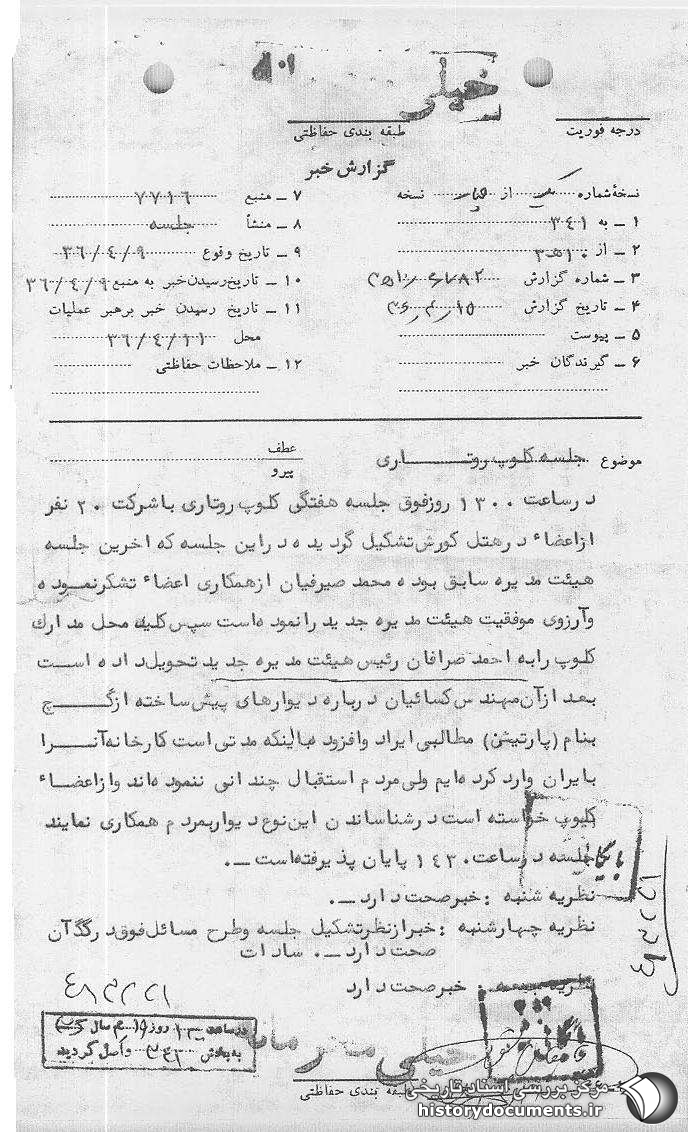 خیلی
درجه فوریت
طبقه بندی حفاظتی
گزارش خبر
نسخهٔ شماره از نسخه
۱ ـ به ۳۴۱
۲ ـ از ۱۰ه۳
۳ ـ شماره گزارش
۴ ـ تاریخ گزارش
۵ ـ پیوست
۶ ـ گیرندگان خبر
۷ ـ منبع ۷۷۱۶
۸ ـ منشأ جلسه
۹ ـ تاریخ وقوع ۳۶/۴/۹
۱۰ ـ تاریخ رسیدن خبر به منبع ۳۶/۴/۹
۱۱ ـ تاریخ رسیدن خبر برهبر عملیات
محل ۳۶/۴/۱۱
۱۲ ـ ملاحظات حفاظتی
موضوع جلسه کلوپ روتاری
عطف
پیرو
درساعت ۱۳۰۰ روزفوق جلسه هفتگی کلوپ روتاری باشرکت ۲۰ نفر
ازاعضاء درهتل کورش تشکیل گردیده دراین جلسه که اخرین جلسه
هیئت مدیره سابق بوده محمد صیرفیان ازهمکاری اعضاء تشکرنموده
وآرزوی موفقیت هیئت مدیره جدید رانموده است سپس کلیه محل مدارک
کلوپ رابه احمد صرافان رئیس هیئت مدیره جدید تحویل داده است
بعد ازآن مهندس کسائیان درباره دیوارهای پیش ساخته ازگچ
بنام (پارتیشن) مطالبی ایراد وافزود بااینکه مدتی است کارخانه آنرا
بایران وارد کرده ایم ولی مردم استقبال چندانی ننموده اند وازاعضاء
کلوپ خواسته است درشناساندن این نوع دیواربمردم همکاری نمایند
جلسه درساعت ۱۴۳۰ پایان پذیرفته است ـ.
نظریه شنبه : خبرصحت دارد ـ.
نظریه چهارشنبه : خبرازنظرتشکیل جلسه وطرح مسائل فوق درگذآن
صحت دارد ـ. سادات
نظریه جمعه . خبرصحت دارد
بایگانی
درساعت روز
به بخش ۳۴۱ واصل گردید
خیلی محرمانه
طبقه بندی حفاظتی
مرکز بررسی اسناد تاریخی
historydocuments.ir